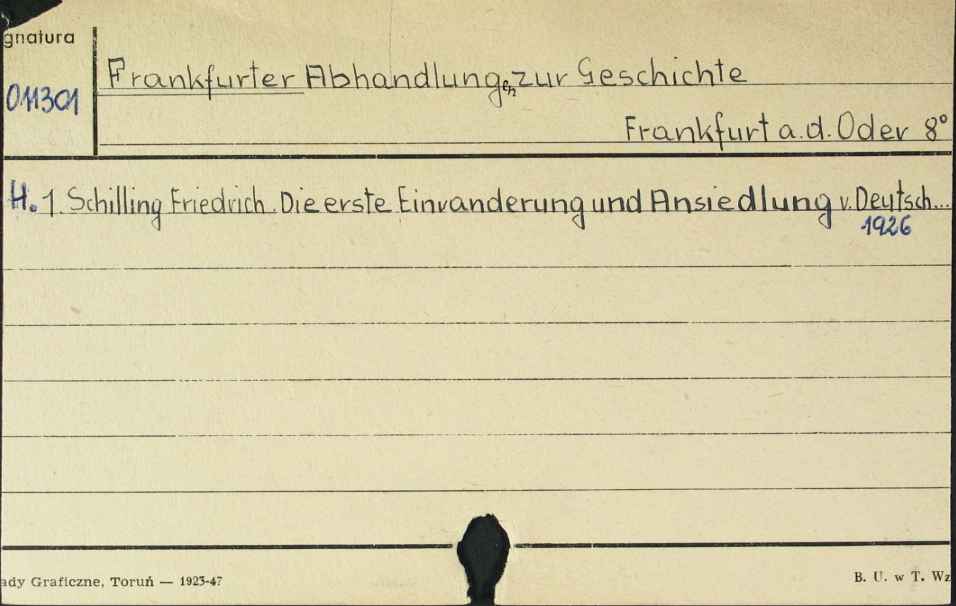 gnatura
011301
Frankfurter Abhandlungen zur Geschichte
Frankfurt a.d. Oder 8°
H. 1. Schilling Friedrich. Die erste Einvanderung und Ansiedlung v. Deutsch...
1926
ady Graficzne, Toruń — 1923-47
B. U. w T. Wz